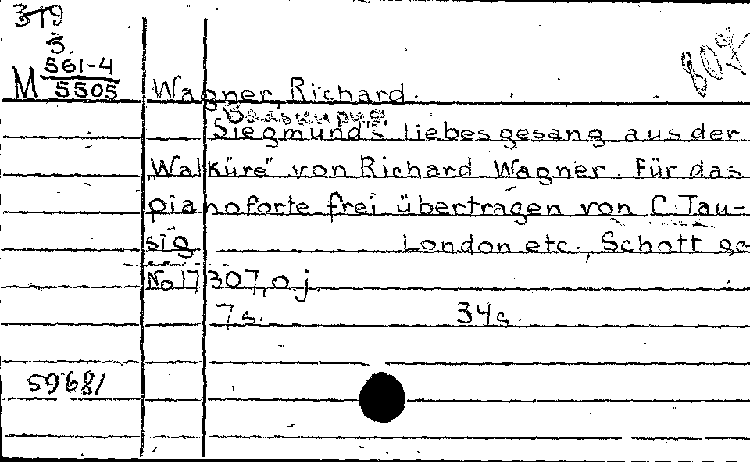 319
3.
М 561-4
5505
Wagner, Richard.
Валькирия
Siegmund's liebesgesang aus der
Walküre" von Richard Wagner. Für das
pianoforte frei übertragen von C. Tau-
sig London etc., Schott
No 17307, o j.
7 s. 34 s.
59681